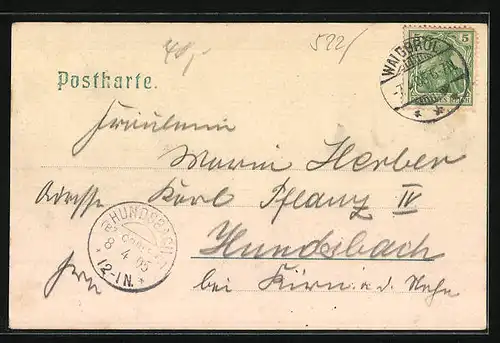 40,-
522/
5
WALDBRÖL
Postkarte.
Fräulein
Marie Herber
Adresse Karl Pflanz IV
HUNDSBACH
8 4 05
12-1N.
Hundsbach
bei Kirn a. d. Nahe